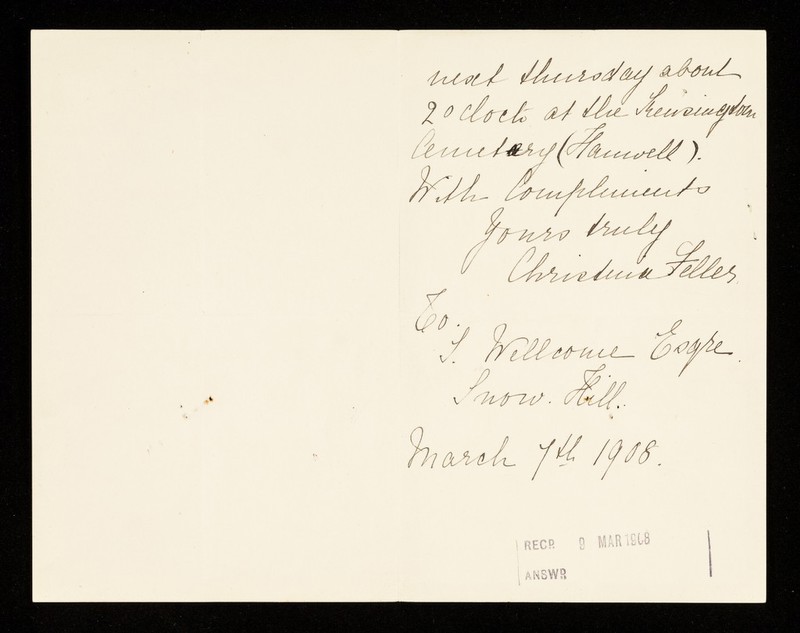 next thursday about
2 o'clock at the Kensington
Cemetery (Hanwell).
With Compliments
Yours truly
Christina Feller
To.
S. Wellcome Esqre.
Snow. Hill.
March 7th 1908.
RECD 9 MAR 1908
ANSWD